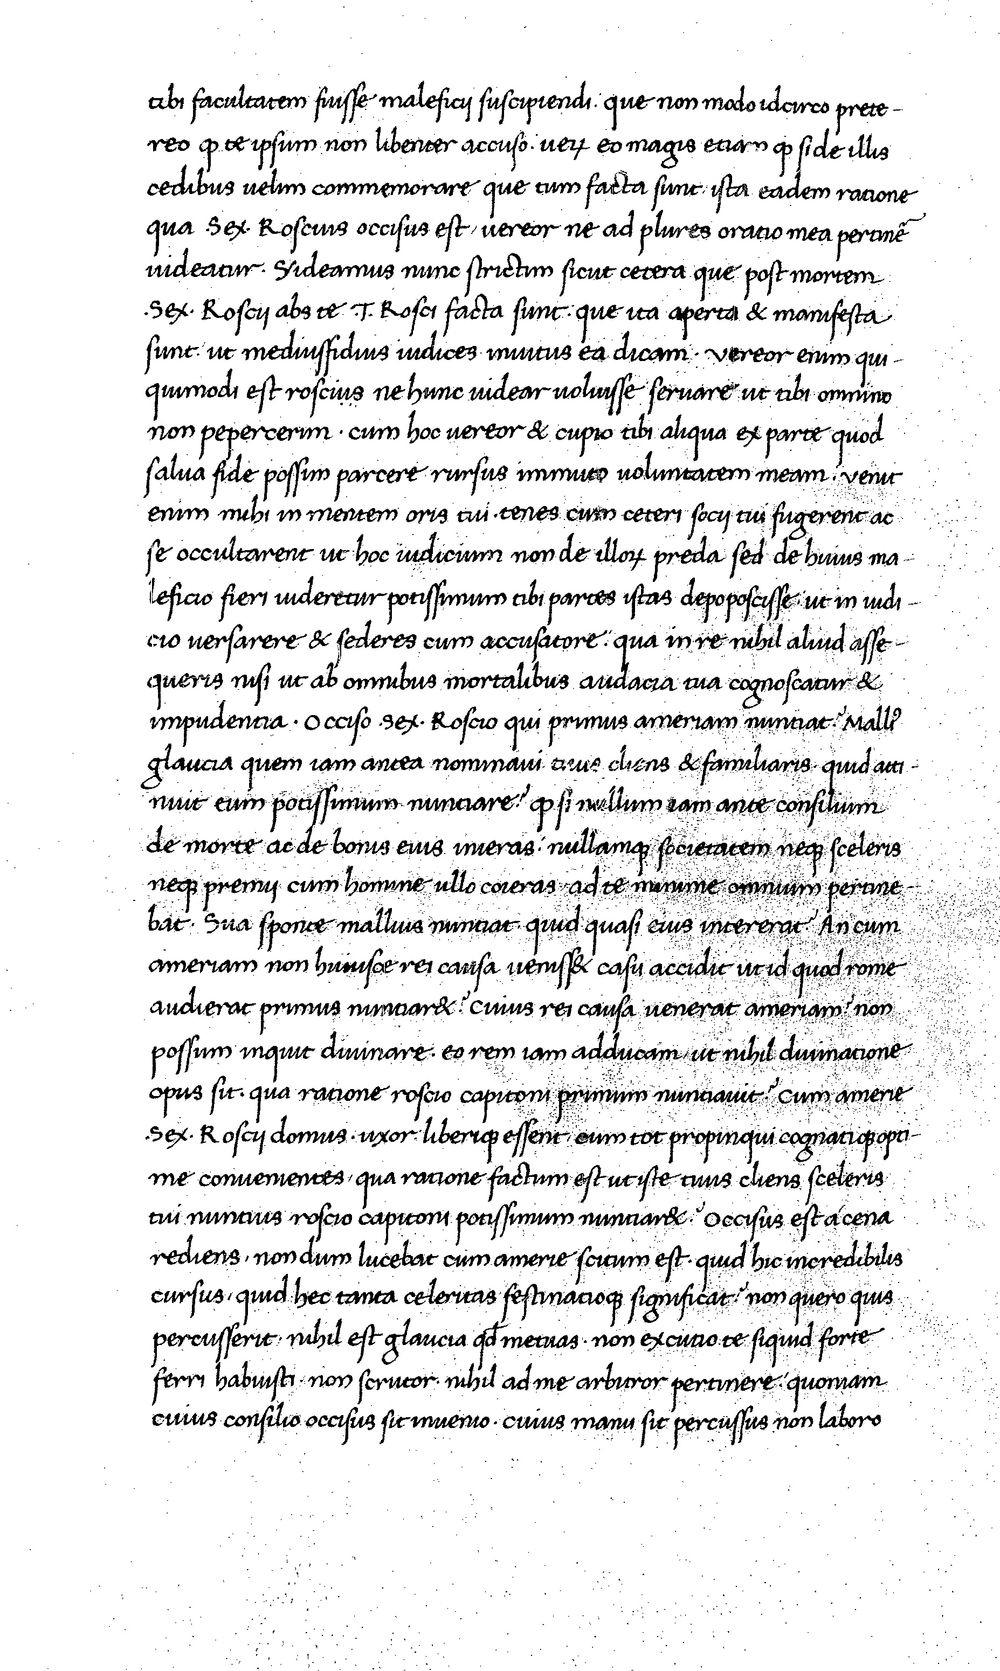 tibi facultatem fuisse maleficij suscipiendi. que non modo idcirco prete-
reo ꝙ te ipsum non libenter accuso. ueꝝ eo magis etiam ꝙ si de illis
cedibus uelim commemorare que tum facta sunt. ista eadem ratione
qua .Sex. Roscius occisus est, uereor ne ad plures oratio mea pertinē
uideatur. Videamus nunc strictim sicut cetera que post mortem
.Sex. Roscij abs te .T. Rosci facta sunt. que ita aperta & manifesta
sunt. ut mediussidius iudices inuitus ea dicam. vereor enim qui-
quimodi est roscius ne hunc uidear uoluisse seruare ut tibi omnino
non pepercerim. cum hoc uereor & cupio tibi aliqua ex parte quod
salua fide possim parcere rursus immuto uoluntatem meam. venit
enim mihi in mentem oris tui. tenes cum ceteri socij tui fugerent ac
se occultarent ut hoc iudicium non de illoꝝ preda sed de huius ma-
leficio fieri uideretur potissimum tibi partes istas depoposcisse. ut in iudi-
cio uersarere & sederes cum accusatore. qua in re nihil aliud asse-
queris nisi ut ab omnibus mortalibus audacia tua cognoscatur &
impudentia. Occiso .Sex. Roscio qui primus ameriam nuntiat? Mallꝰ
glaucia quem iam antea nominaui tuus cliens & familiaris. quid atti-
nuit eum potissimum nunciare? ꝙ si nullum iam ante consilium
de morte ac de bonis eius inieras. nullamqꝫ societatem neqꝫ sceleris
neqꝫ premij cum homine ullo coieras. ad te minime omnium pertine-
bat. Sua sponte mallius nuntiat. quid quasi eius intererat? An cum
ameriam non huiusce rei causaueniss& casu accidit ut id quod rome
audierat primus nuntiar&? Cuius rei causa uenerat ameriam? non
possum inquit diuinare. eo rem iam adducam, ut nihil diuinatione
opus sit. qua ratione roscio capitoni primum nuntiauit? Cum amerie
.Sex. Roscij domus. uxor. liberiqꝫ essent, cum tot propinqui cognatiqꝫ opti-
me conuenientes, qua ratione factum est ut iste tuus cliens sceleris
tui nuntius roscio capitoni potissimum nuntiar&? Occisus est a cena
rediens, nondum lucebat cum amerie scitum est. quid hic incredibilis
cursus, quid hec tanta celeritas festinatioqꝫ significat? non quero quis
percusserit. nihil est glaucia qđ metuas. non excutio te siquid forte
ferri habuisti. non scrutor. nihil ad me arbitror pertinere. quoniam
cuius consilio occisus sit inuenio. cuius manu sit percussus non laboro